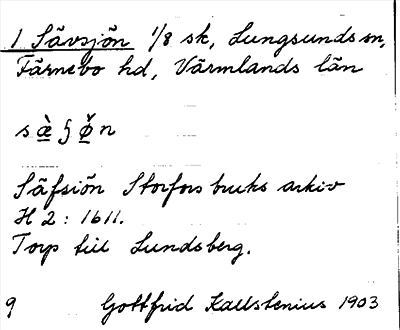 1 Sävsjön 1/8 sk, Lungsunds sn,
Färnebo hd, Värmlands län
s æ̀ § ø̌ n
Säfsiön Storfors bruks arkiv
H 2 : 1611.
Torp till Lundsberg.
9 Gottfrid Kallstenius 1903